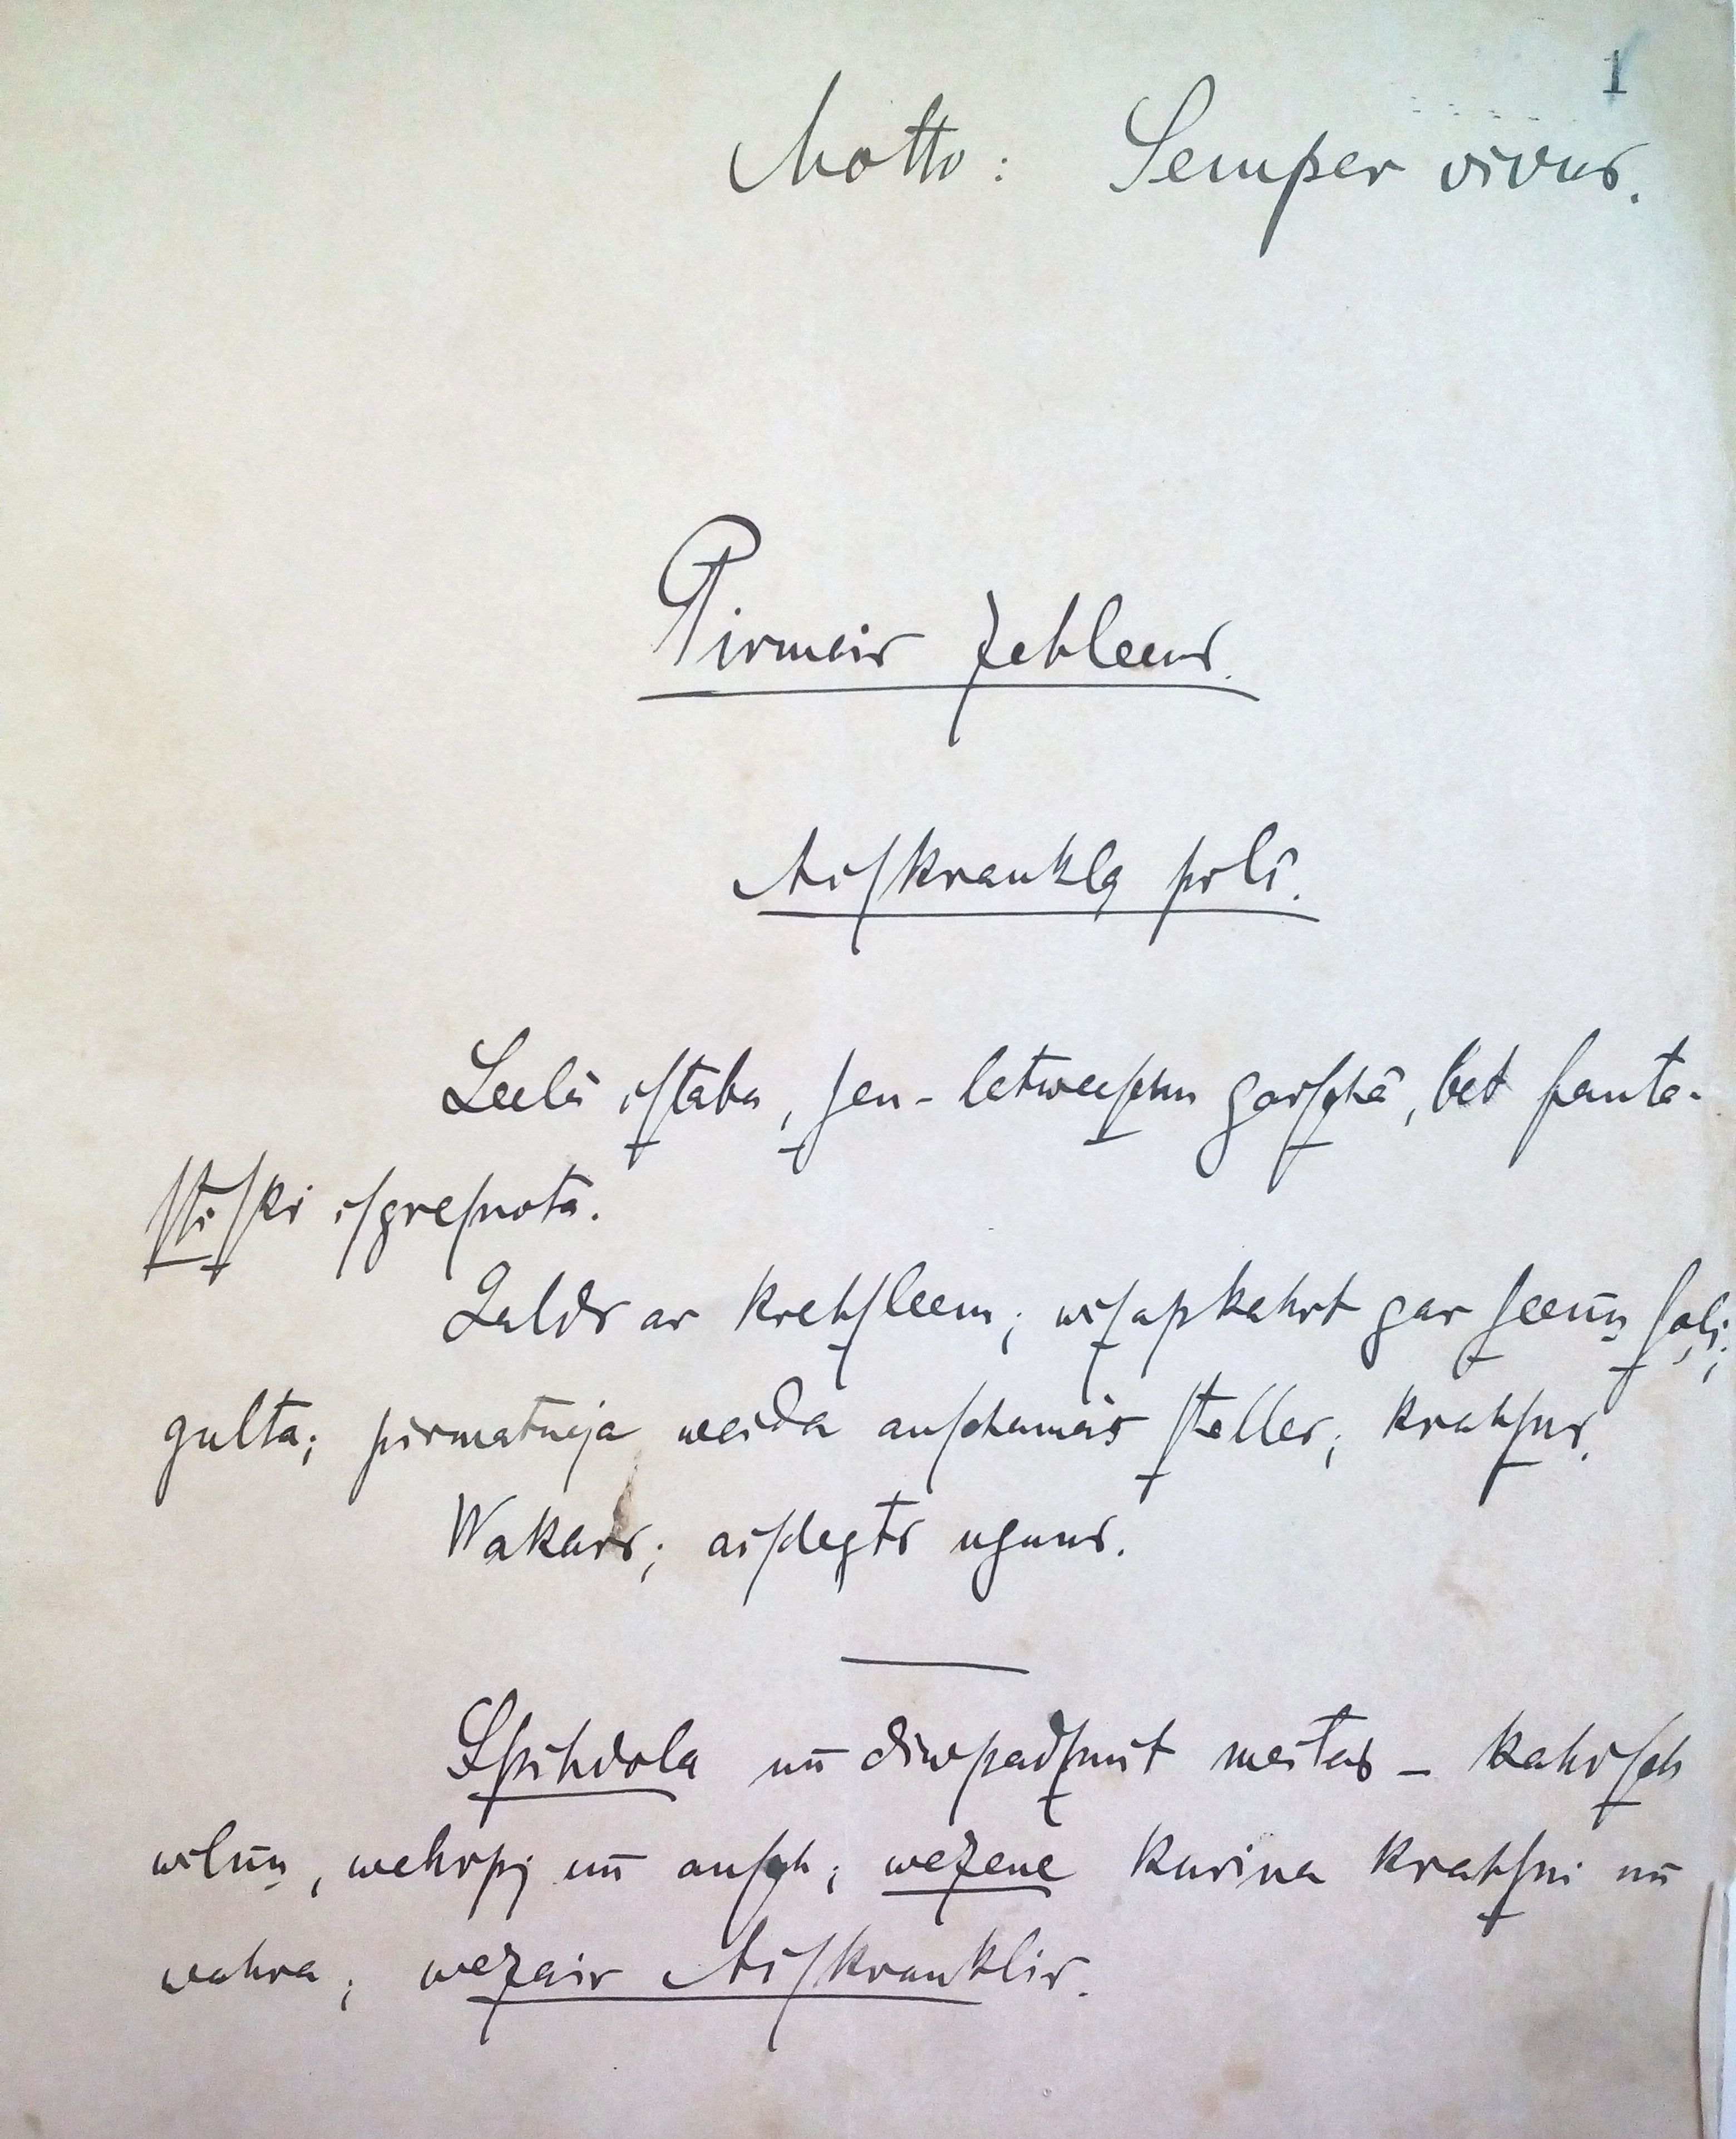 1
Motto: Semper vivus.
Pirmais zehleens.
Aiſkraukļa pilî.
Leelâ iſtaba, ſen-latweeſchu garſchâ, bet fanta-
ſtiſki iſgreſnota.
Galds ar krehſleem; wiſapkahrt gar ſeenu ſoli;
gulta; pirmatnejâ weidâ auſchamâs ſtelles; krahſns.
Wakars; aiſdegts uguns.
Spihdola un diwpadſmit meitas – kahrſch
wilnu, wehrpj un auſch; wezene kurina krahſni un
wahra; wezais Aiſkrauklis.